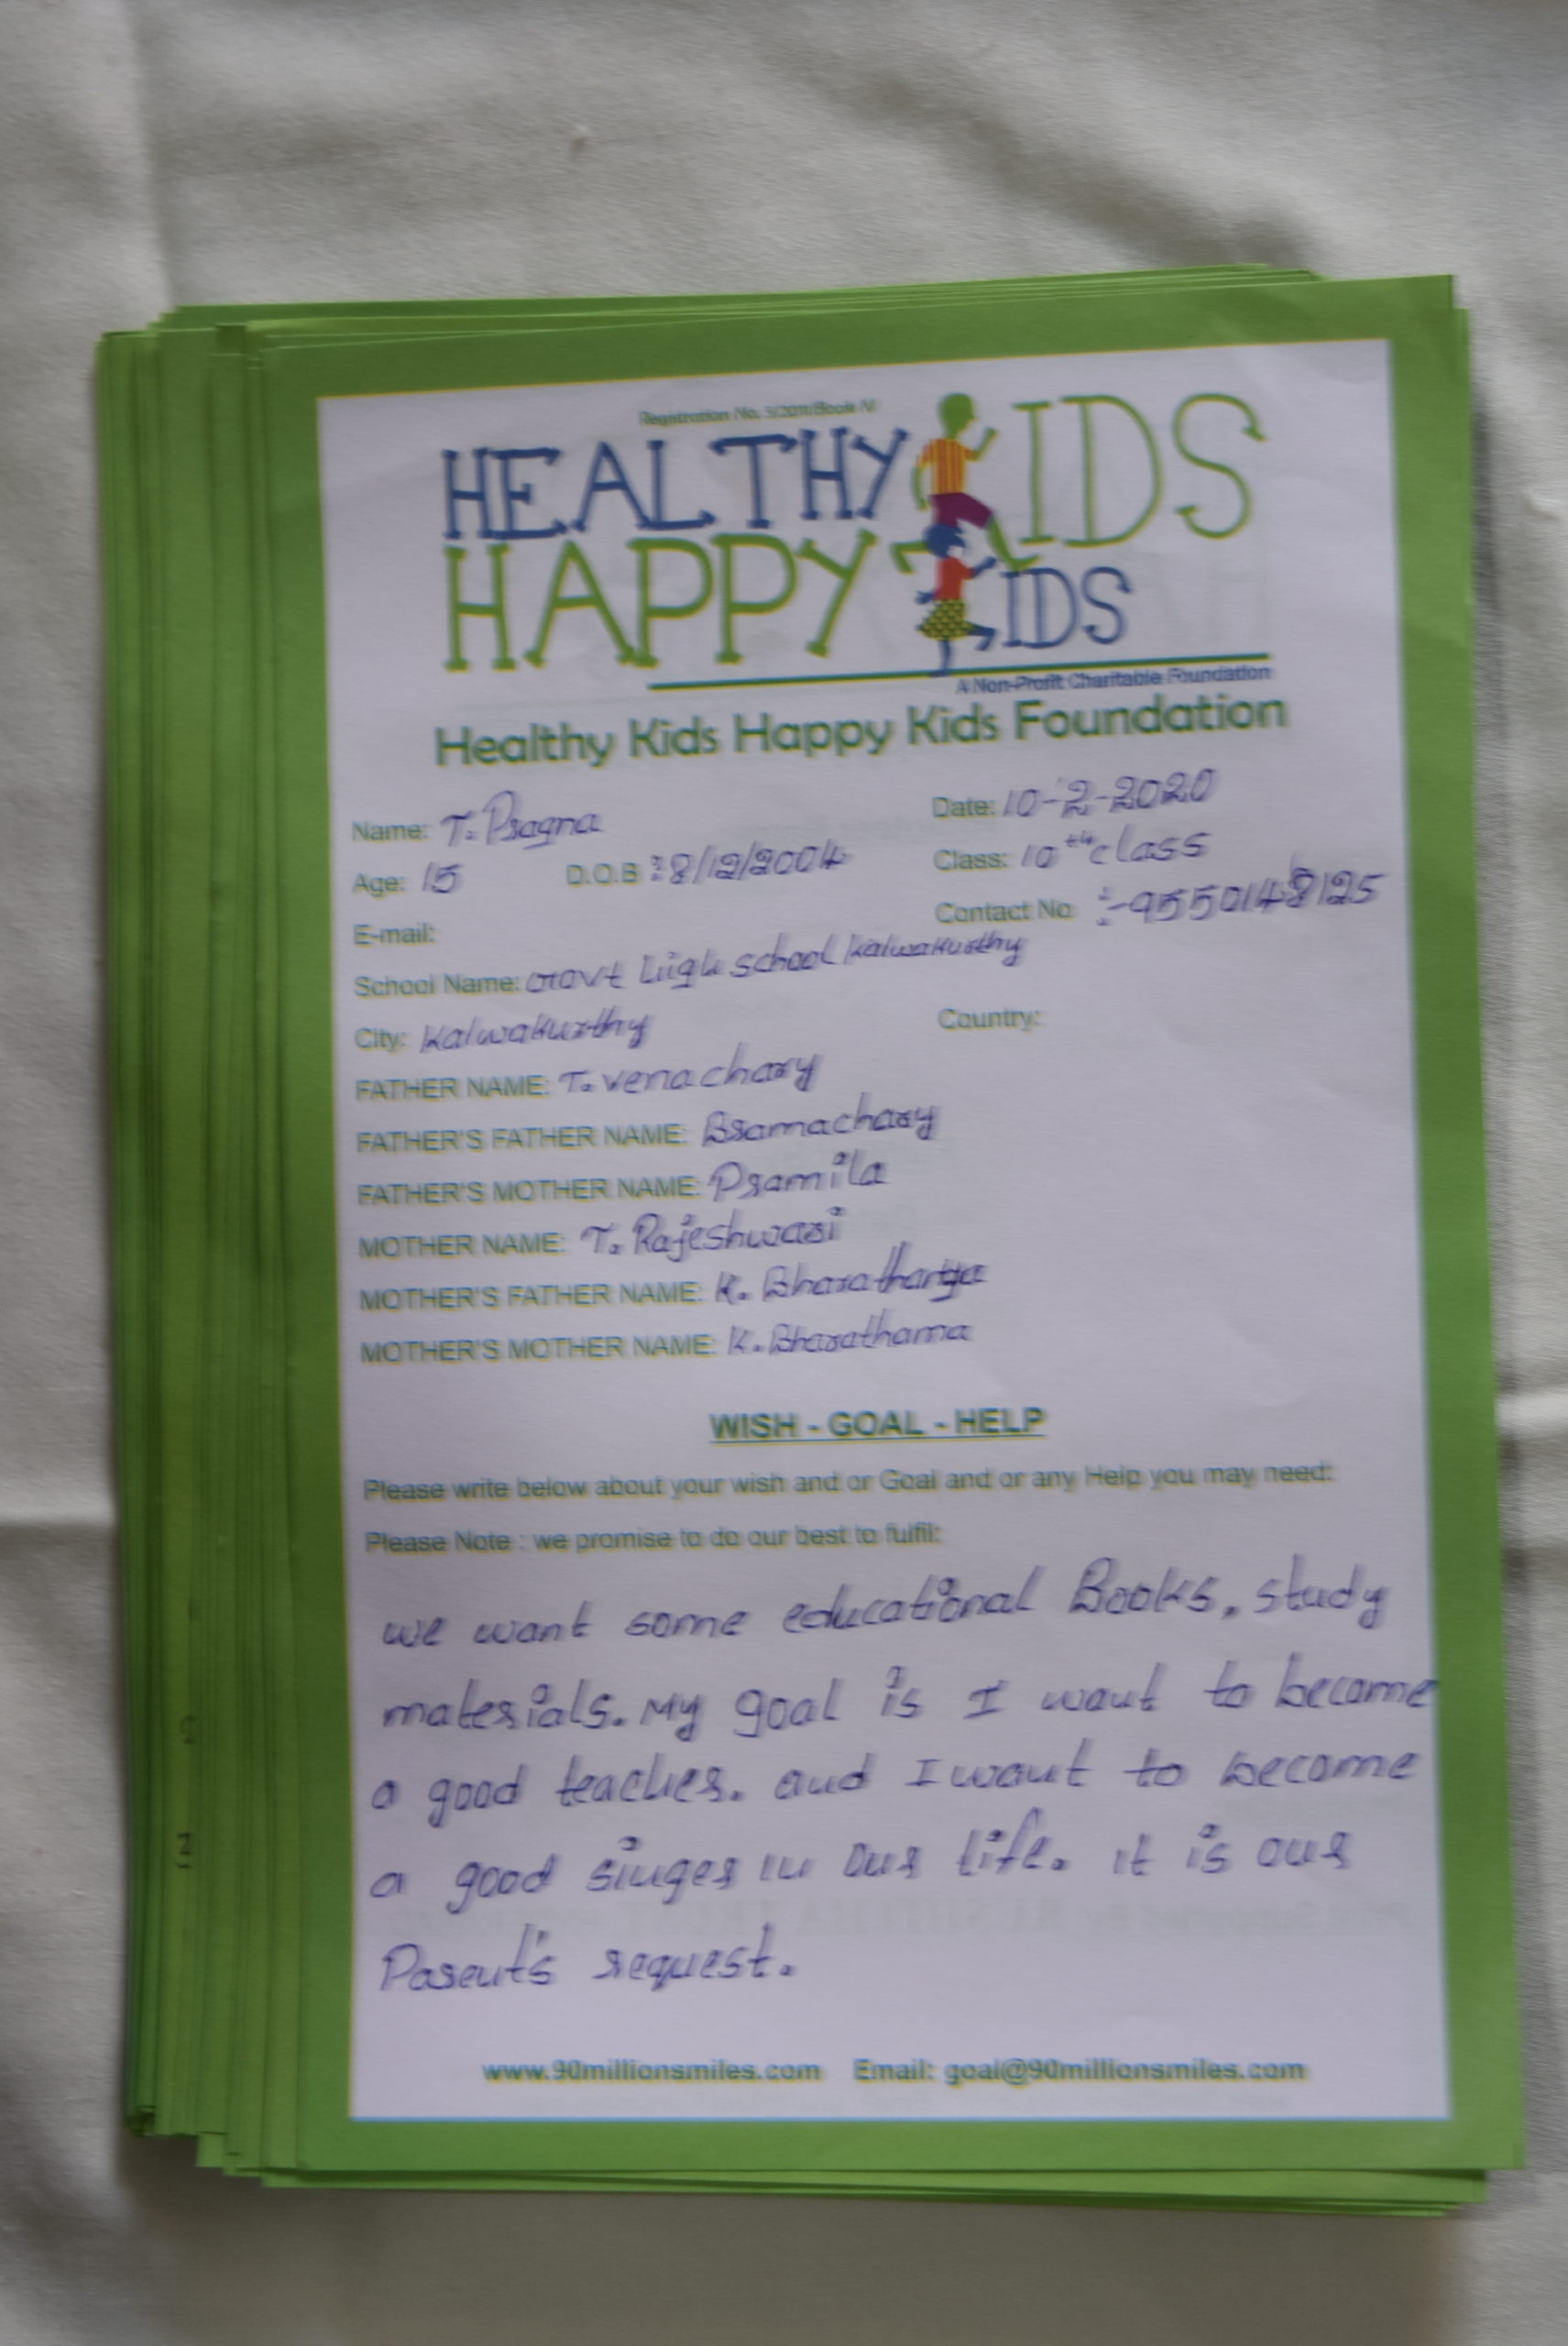 Registration No. 5/2011/Book IV
HEALTHY KIDS
HAPPY KIDS
A Non-Profit Charitable Foundation
Healthy Kids Happy Kids Foundation
Name: T. Pragna
Date: 10-2-2020
Age: 15 D.O.B :- 8/12/2004
Class: 10th class
E-mail:
Contact No :- 9550148125
School Name: Govt high school kalwakurthy
City: Kalwakurthy Country:
FATHER NAME: T. venachary
FATHER'S FATHER NAME: Bramachary
FATHER'S MOTHER NAME: Pramila
MOTHER NAME: T. Rajeshwari
MOTHER'S FATHER NAME: K.
MOTHER'S MOTHER NAME: K. Bharathama
WISH - GOAL - HELP
Please write below about your wish and or Goal and or any Help you may need:
Please Note : we promise to do our best to fulfil:
we want some educational Books, study
materials. My goal is I want to become
a good teacher. and I want to become
a good singer in our life. it is our
Parent's request.
www.90millionsmiles.com Email: goal@90millionsmiles.com